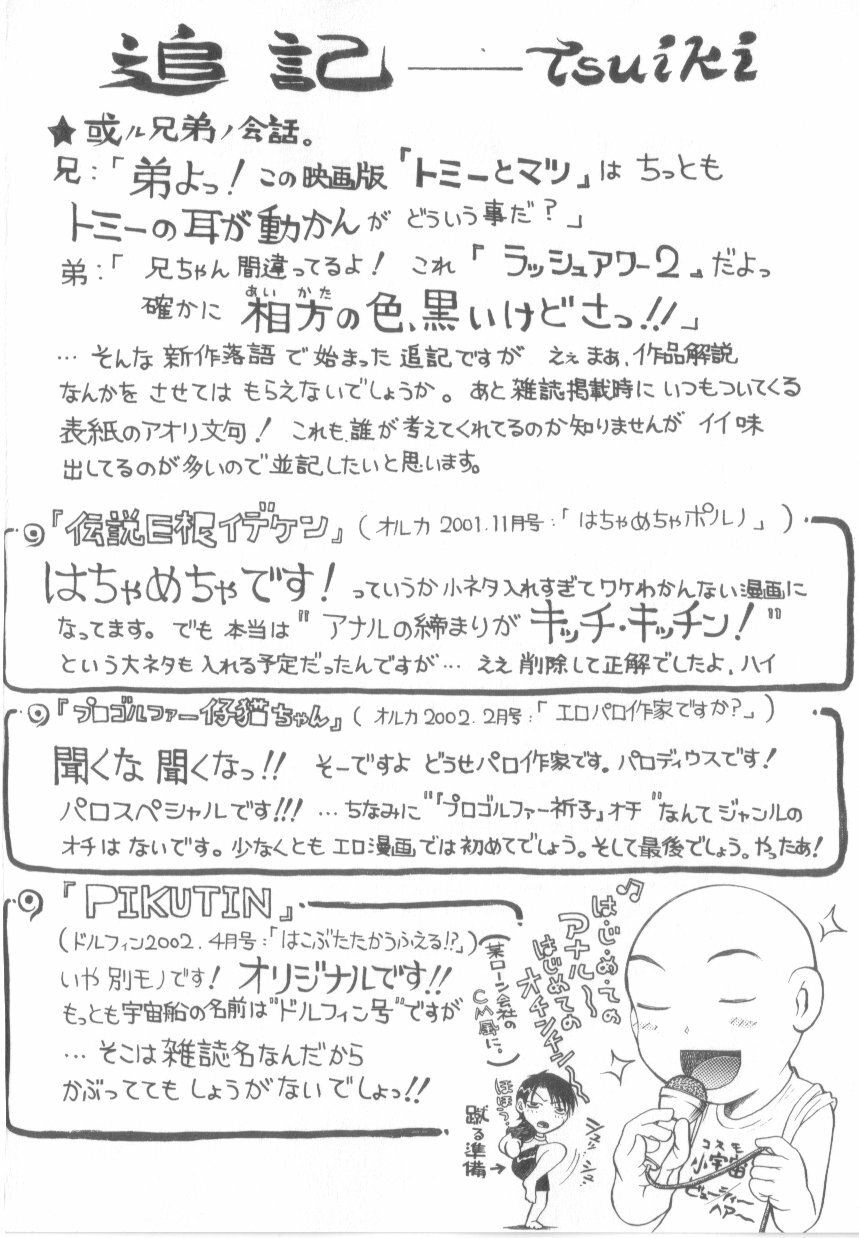 追記 ── tsuiki
★或ル兄弟ノ会話。
兄:「弟よっ! この映画版『トミーとマツ』は ちっとも
トミーの耳が動かんが どういう事だ?」
弟:「兄ちゃん間違ってるよ! これ『ラッシュアワー2』だよっ
確かに 相方の色、黒いけどさっ!!」
あい かた
… そんな 新作落語 で始まった 追記ですが ええ まあ、作品解説
なんかを させては もらえないでしょうか。あと 雑誌掲載時に いつもついてくる
表紙のアオリ文句! これも、誰が考えてくれてるのか知りませんが イイ味
出してるのが多いので並記したいと思います。
『伝説巨根イデケン』(オルカ 2001.11月号:「はちゃめちゃポルノ」)
はちゃめちゃです! っていうか 小ネタ入れすぎてワケわかんない漫画に
なってます。でも 本当は "アナルの締まりが キッチ・キッチン!"
という大ネタも入れる予定だったんですが… ええ 削除して正解でしたよ、ハイ
『プロゴルファー仔猫ちゃん』(オルカ2002.2月号:「エロパロ作家ですか?」)
聞くな 聞くなっ!! そーですよ どうせパロ作家です。パロディウスです!
パロスペシャルです!!! …ちなみに"『プロゴルファー祈子』オチ"なんてジャンルの
オチは ないです。少なくとも エロ漫画では初めてでしょう。そして最後でしょう。やったあ!
『PIKUTIN』
(ドルフィン2002.4月号:「はこぶたたかうふえる!?」)
いや 別モノです! オリジナルです!!
もっとも宇宙船の名前は"ドルフィン号"ですが
… そこは雑誌名なんだから
かぶってても しょうがないでしょっ!!
♪は・じ・め・ての
アナル〜
はじめての
オチンチン〜
(某ローン会社の
CM風に。)
ほほう。
蹴る準備→
コスモ
小宇宙
ビューティー
ヘアー